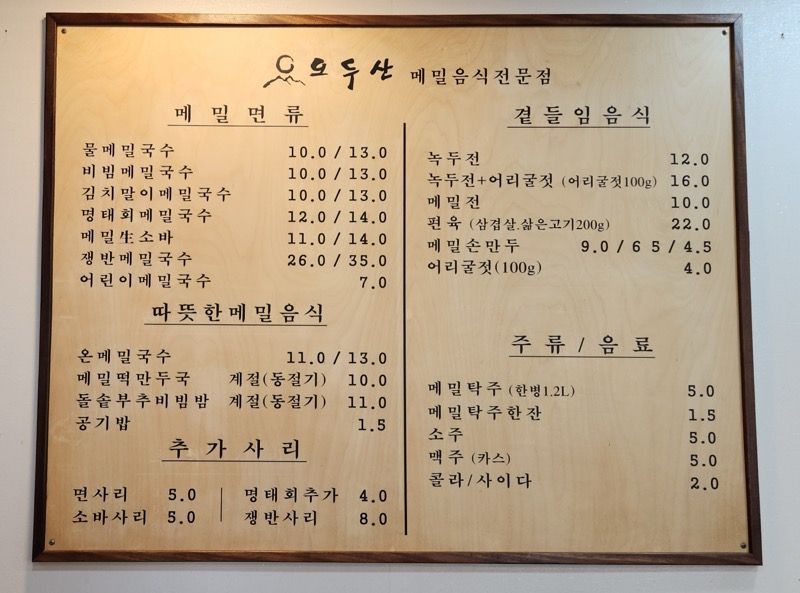 오두산 메밀음식전문점
메밀면류
물메밀국수 10.0 / 13.0
비빔메밀국수 10.0 / 13.0
김치말이메밀국수 10.0 / 13.0
명태회메밀국수 12.0 / 14.0
메밀生소바 11.0 / 14.0
쟁반메밀국수 26.0 / 35.0
어린이메밀국수 7.0
따뜻한메밀음식
온메밀국수 11.0 / 13.0
메밀떡만두국 계절(동절기) 10.0
돌솥부추비빔밤 계절(동절기) 11.0
공기밥 1.5
추가사리
면사리 5.0 명태회추가 4.0
소바사리 5.0 쟁반사리 8.0
곁들임음식
녹두전 12.0
녹두전+어리굴젓 (어리굴젓100g) 16.0
메밀전 10.0
편육 (삼겹살.삶은고기200g) 22.0
메밀손만두 9.0 / 6 5 / 4.5
어리굴젓(100g) 4.0
주류 / 음료
메밀탁주 (한병1.2L) 5.0
메밀탁주한잔 1.5
소주 5.0
맥주 (카스) 5.0
콜라/사이다 2.0